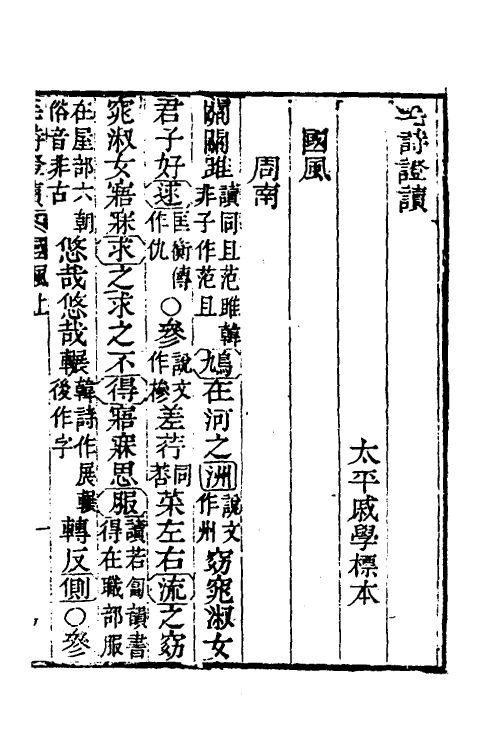 毛詩證讀
太平戚學標本
國風
周南
關關雎讀同且范雎韓非子作范且鳩在河之洲說文作州窈窕淑女
君子好逑匡衡傳作仇○參說文作槮差荇同莕菜左右流之窈
窕淑女寤寐求之求之不得寤寐思服讀若匐韻書得在職部服
在屋部六朝俗音非古悠哉悠哉輾韓詩作展輾後作字轉反側○參
毛詩證讀 國風上 一